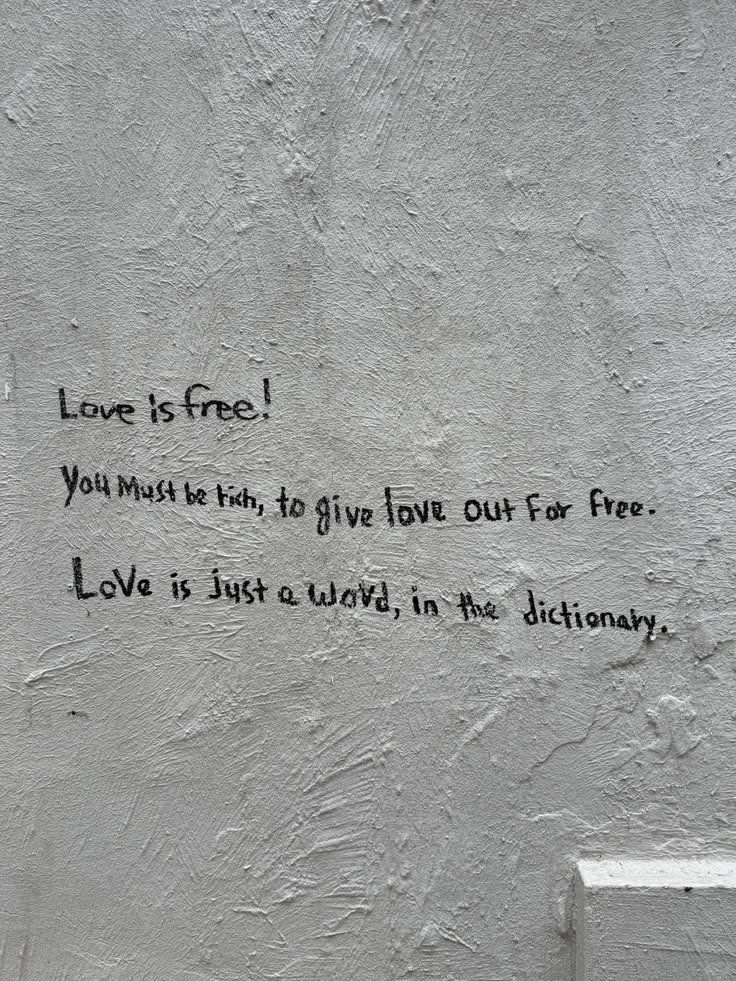 Love is free!
You Must be rich, to give love out for free.
Love is just a word, in the dictionary.